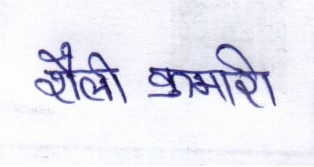 शैली कुमारी